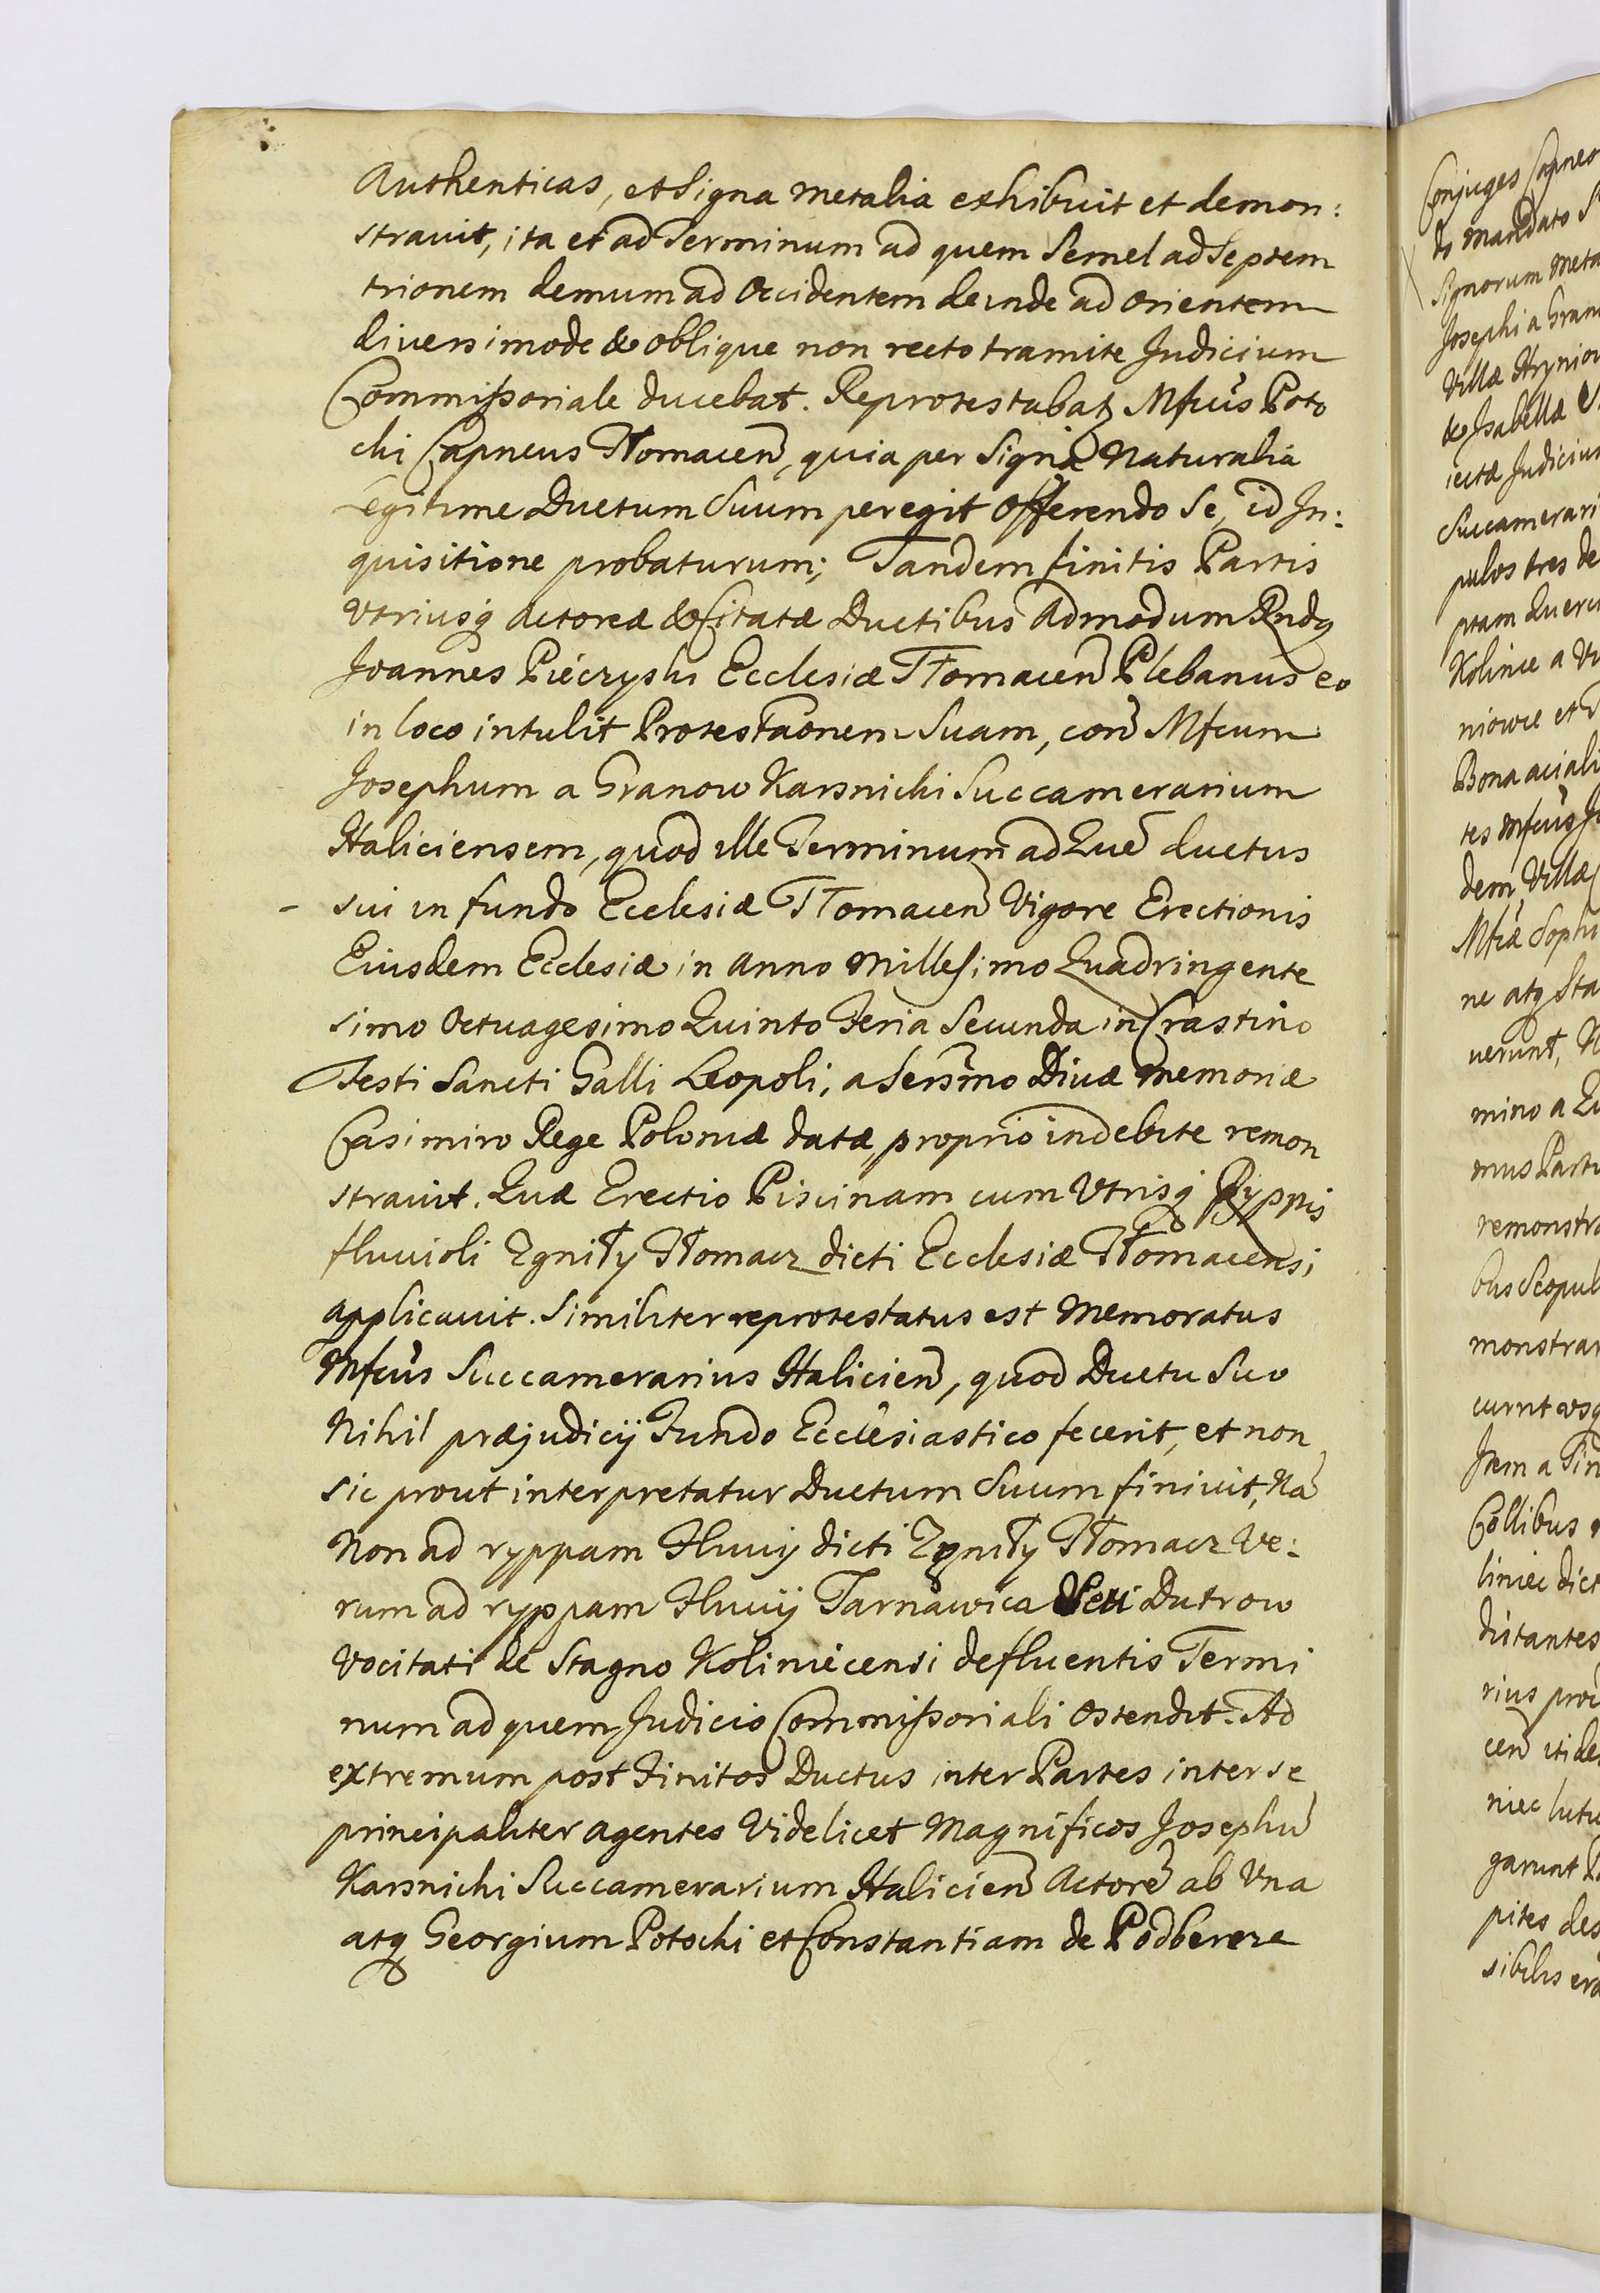 Authenticas, et Signa Metalia exhibuit et demon:
stravit, ita et ad Terminum ad quem Semel ad Septem
trionem demum ad Occidentem deinde ad Orientem
diversimode & oblique non recto tramite Judicium
Commissoriale ducebat. Reprotestabat Mfcus Poto
cki Capneus Tłomacen, quia per Signa Naturalia
legitime Ductum Suum peregit offerendo Se, id In:
quisitione probaturum; Tandem finitis Partis
Utriusq Actoreæ & Citatæ Ductibus Admodum Rndq
Joannes Piéczyski Ecclesiæ Tłomacen Plebanus eo
in loco intulit Protestaonem Suam, con Mfcum
Josephum a Granow Karsnicki Succamerarium
Haliciensem, quod ille Terminum ad Que ductus
– sui in fundo Ecclesiæ Tłomacen Vigore Erectionis
Eiusdem Ecclesiæ in Anno Millesimo Quadringente
simo Octuagesimo Quinto Feria Secunda in Crastino
Festi Sancti Galli Leopoli, a Sersmo Divæ Memoriæ
Casimiro Rege Poloniæ datæ, proprio indebite remon
stravit. Quæ Erectio Piscinam cum Utrisq Ryppis
fluvioli Zgniły Tłomacz dicti Ecclesiæ Tłomacensi
applicavit. Similiter reprotestatus est Memoratus
Mfcus Succamerarius Halicien, quod Ductu Suo
Nihil præjudicij Fundo Ecclesiastico fecerit, et non
sic prout interpretatur Ductum Suum finivit, Na
Non ad ryppam Fluvij dicti Zgniły Tłomacz Ve:
rum ad ryppam Fluvij Tarnawica Seu Dutrow
Vocitati de Stagno Koliniecensi defluentis Termi
num ad quem Judicio Commissoriali Ostendit. Ad
extremum post Finitos Ductus inter Partes inter se
principaliter agentes Videlicet Magnificos Josephu
Karsnicki Succamerarium Halicien Actore ab Una
atq Georgium Potocki et Constantiam de Podberere
Conjuges Capneo
do mandato
Signorum Meta
Josephi a Gran
Villæ Hryniow
& Isabellæ
iectæ Judicium
Succamerari
pulos tres de
ptam Quercu
Kolince a
niowce et
Bona aciali
tes Mfcus
dem Villæ
Mfcæ Sophi
ne atq Sta
uerunt,
mino a Qu
mus Parti
remonstra
bus Scopul
monstrar
currt usq
Item a Tin
Collibus
liniec dict
distantes
rius
cen itide
niec lutu
garunt
pites des
sibilis era